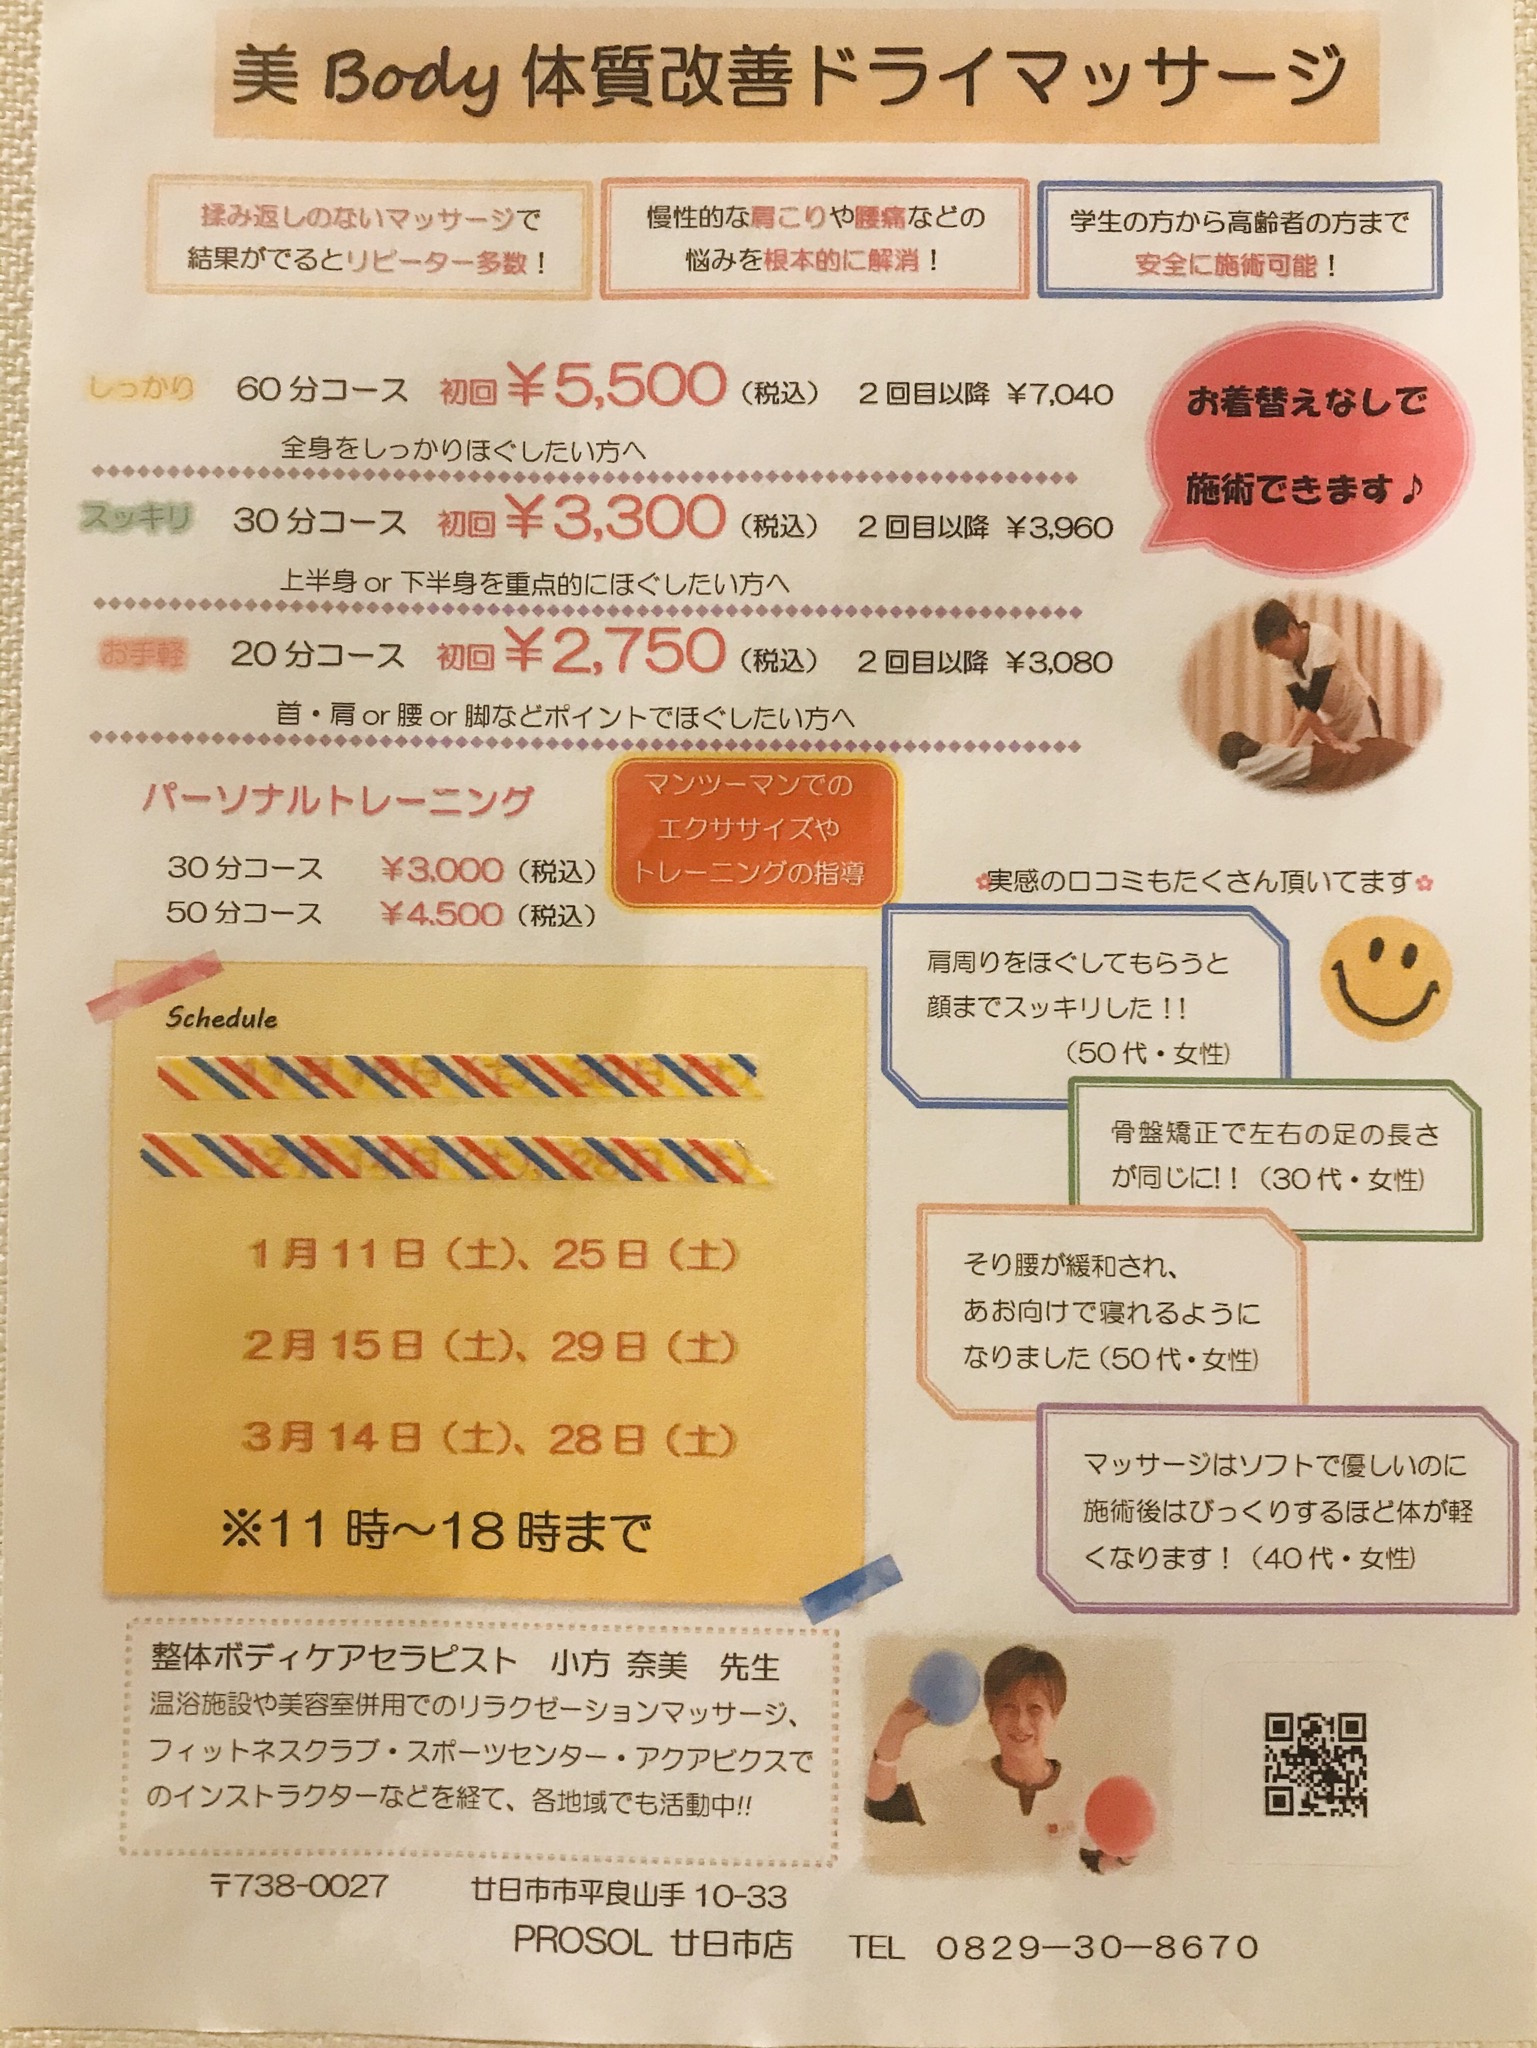 美 Body 体質改善ドライマッサージ
揉み返しのないマッサージで
結果がでるとリピーター多数！
慢性的な肩こりや腰痛などの
悩みを根本的に解消！
学生の方から高齢者の方まで
安全に施術可能！
しっかり 60分コース 初回￥5,500（税込） 2回目以降 ￥7,040
全身をしっかりほぐしたい方へ
お着替えなしで
施術できます♪
スッキリ 30分コース 初回￥3,300（税込） 2回目以降 ￥3,960
上半身 or 下半身を重点的にほぐしたい方へ
お手軽 20分コース 初回￥2,750（税込） 2回目以降 ￥3,080
首・肩 or 腰 or 脚などポイントでほぐしたい方へ
パーソナルトレーニング
30分コース ￥3,000（税込）
50分コース ￥4,500（税込）
マンツーマンでの
エクササイズや
トレーニングの指導
✿実感の口コミもたくさん頂いてます✿
肩周りをほぐしてもらうと
顔までスッキリした！！
（50代・女性）
骨盤矯正で左右の足の長さ
が同じに！！（30代・女性）
そり腰が緩和され、
あお向けで寝れるように
なりました（50代・女性）
マッサージはソフトで優しいのに
施術後はびっくりするほど体が軽
くなります！（40代・女性）
Schedule
1月11日（土）、25日（土）
2月15日（土）、29日（土）
3月14日（土）、28日（土）
※11時～18時まで
整体ボディケアセラピスト 小方 奈美 先生
温浴施設や美容室併用でのリラクゼーションマッサージ、
フィットネスクラブ・スポーツセンター・アクアビクスで
のインストラクターなどを経て、各地域でも活動中!!
〒738-0027 廿日市市平良山手10-33
PROSOL 廿日市店 TEL 0829－30－8670